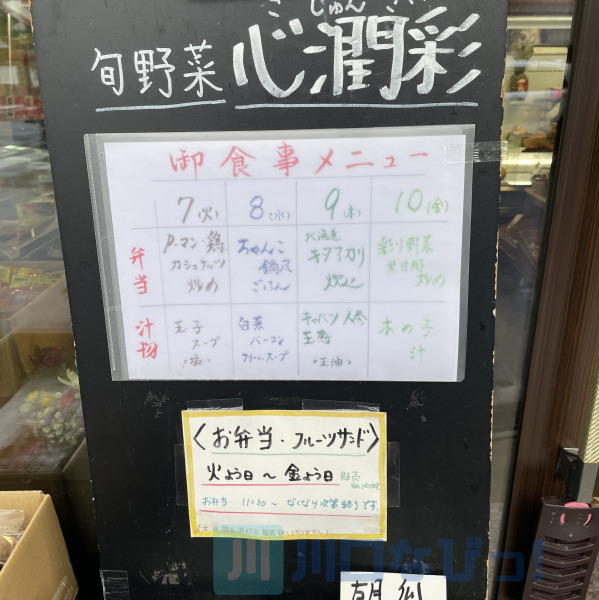 旬野菜 心潤彩
御食事メニュー
7(火) 8(水) 9(木) 10(金)
弁当
ピーマン・鶏
カシュナッツ
炒め
ちゃんこ
鍋風
ごはん
北海道
キタアカリ
炊込
彩り野菜
黒甘酢
炒め
汁物
玉子
スープ
<塩>
白菜
ベーコン
クリームスープ
キャベツ 人参
玉葱
<正油>
木の子
汁
〈お弁当・フルーツサンド〉
火よう日 ~ 金よう日 販売
お弁当 11:30 ~ なくなり次第終了です
川口なびっ!